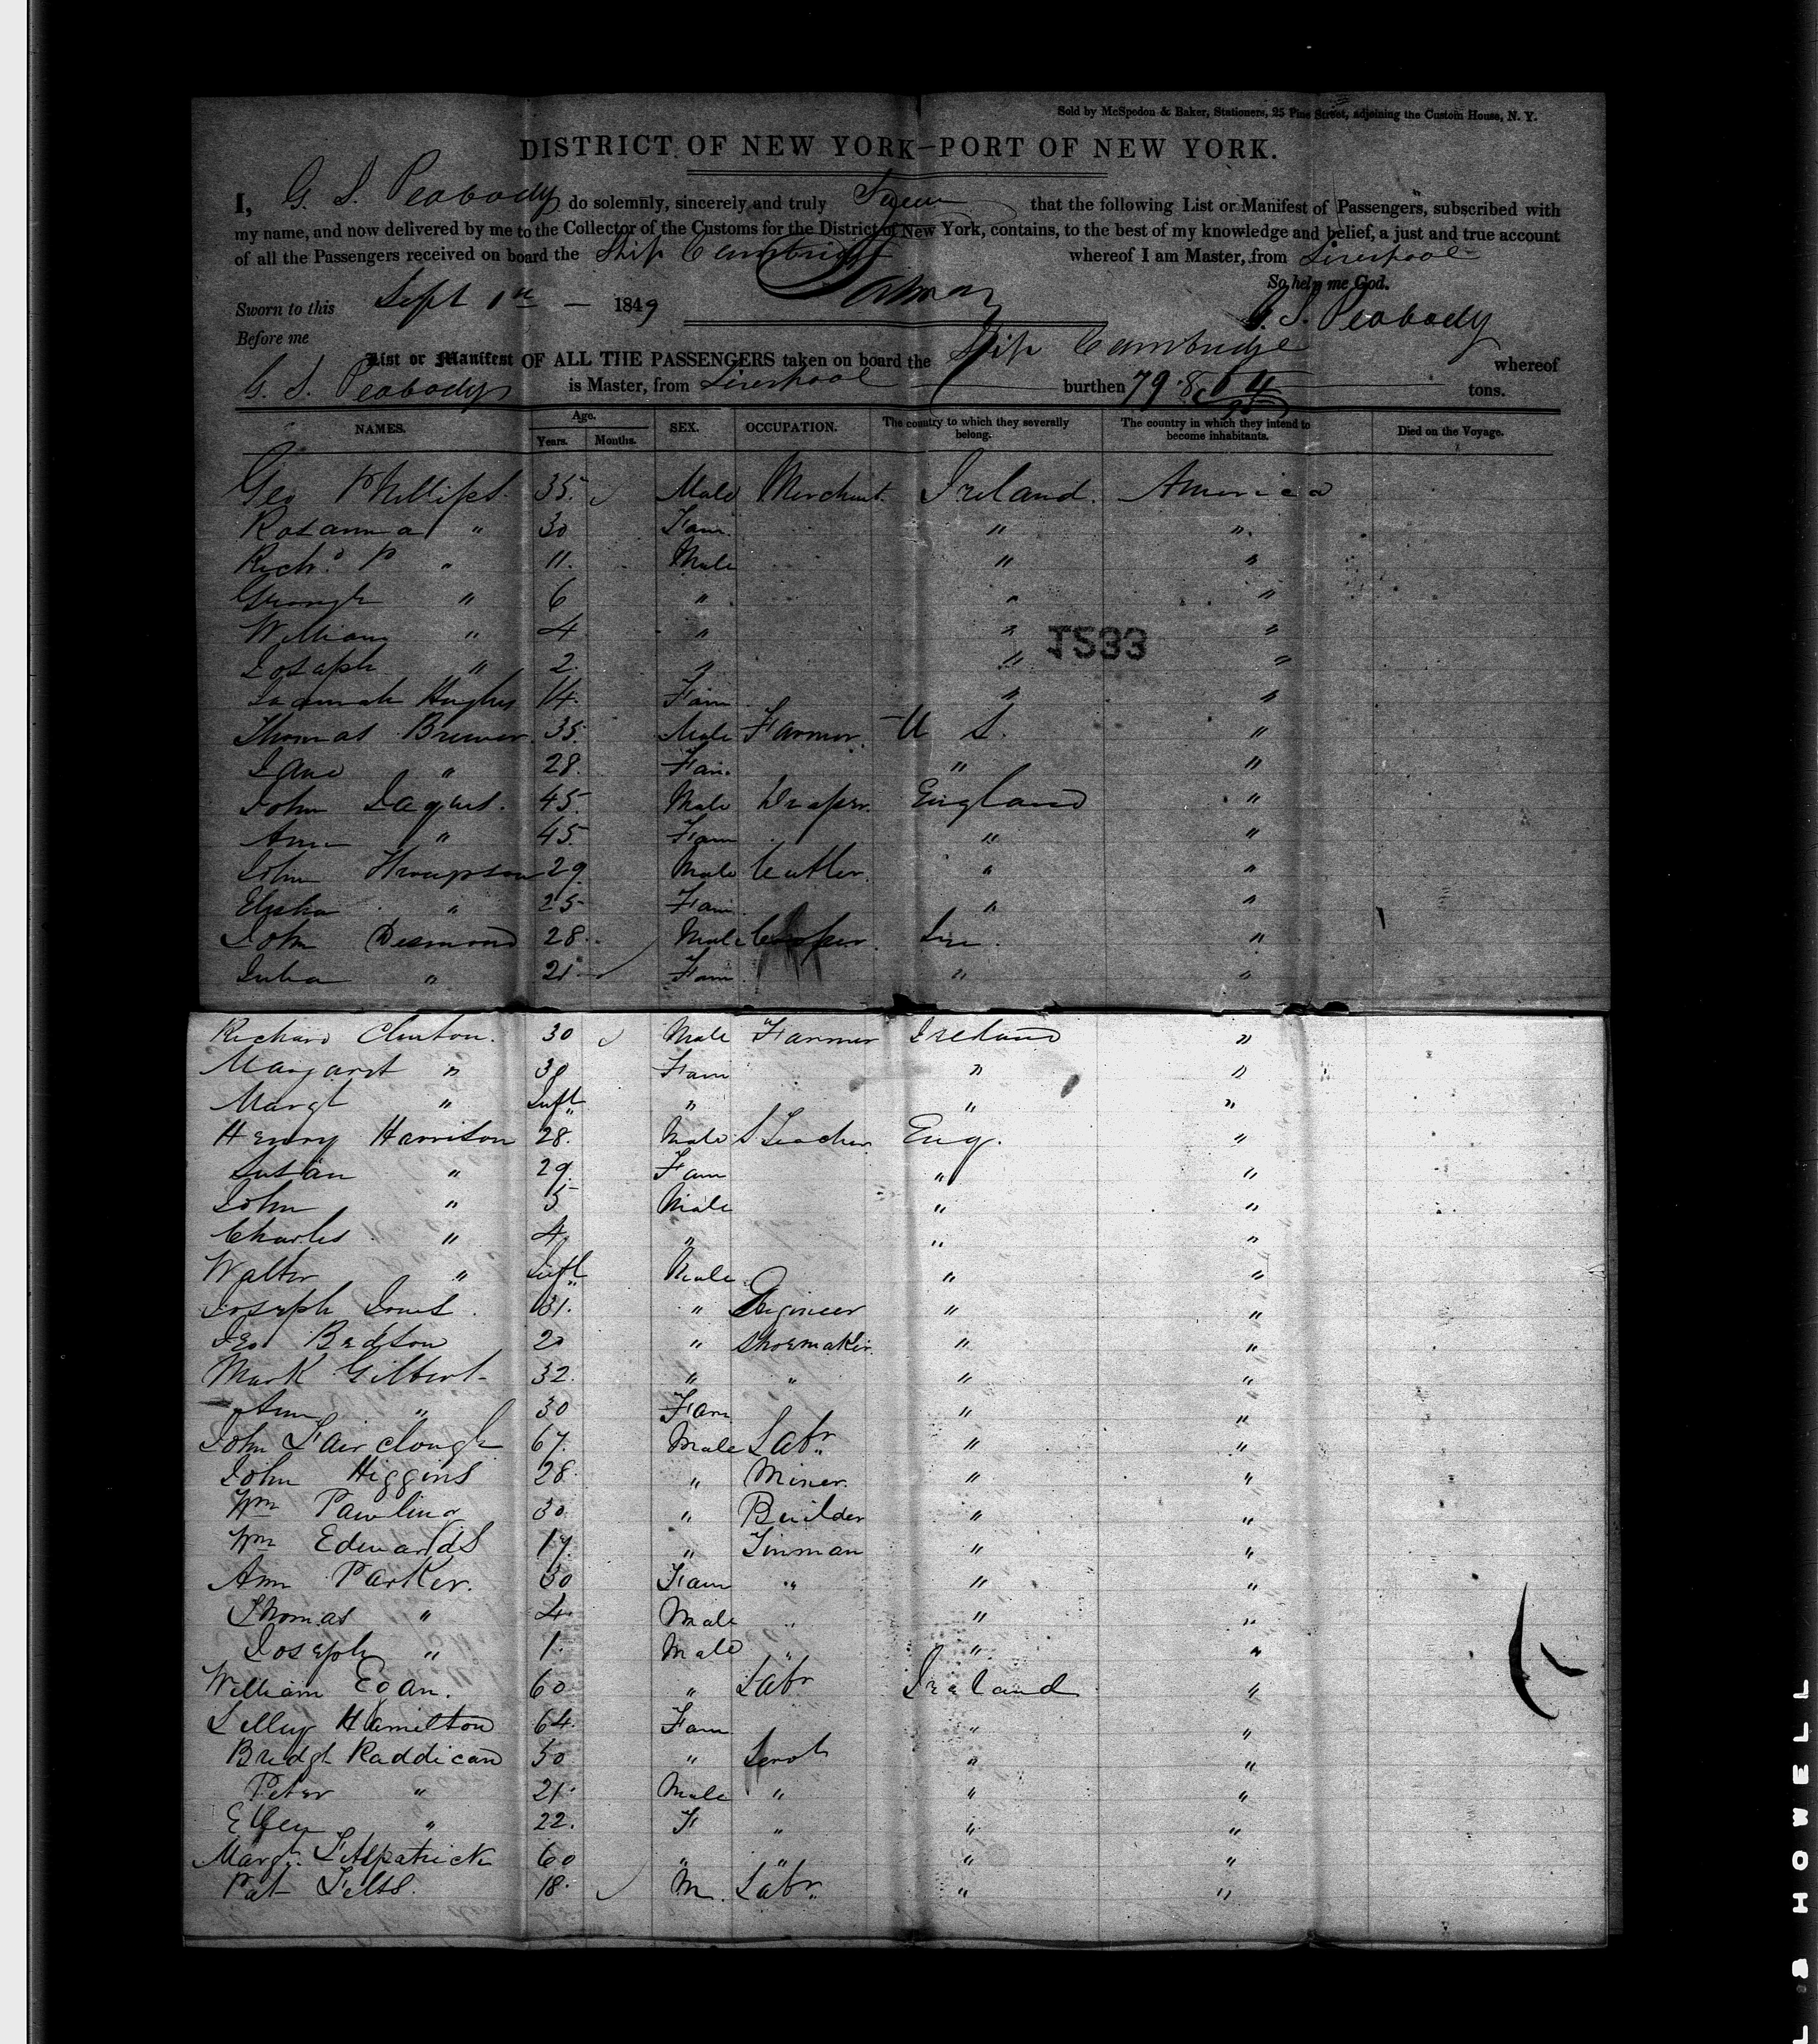 Sold by McSpedon & Baker, Stationers, 25 Pine Street, adjoining the Custom House, N. Y.
DISTRICT OF NEW YORK—PORT OF NEW YORK.
I, G. S. Peabody do solemnly, sincerely and truly Swear that the following List or Manifest of Passengers, subscribed with
my name, and now delivered by me to the Collector of the Customs for the District of New York, contains, to the best of my knowledge and belief, a just and true account
of all the Passengers received on board the Ship Cambridge whereof I am Master, from Liverpool
So help me God.
Sworn to this Sept 1st — 1849
G. S. Peabody
Before me
List or Manifest OF ALL THE PASSENGERS taken on board the Ship Cambridge whereof
G. S. Peabody is Master, from Liverpool burthen 798 64/95 tons.
NAMES. Age. Years. Months. SEX. OCCUPATION. The country to which they severally belong. The country in which they intend to become inhabitants. Died on the Voyage.
Geo Phillips. 35. Male Merchant. Ireland. America
Rosanna " 30 Fam. " "
Richd P " 11. Male " "
George " 6 " " "
William " 4 " " "
1533
Joseph " 2. " " "
Hughes 14. Fam " "
Thomas Brewer. 35. Male Farmer. U S. "
Jane " 28. Fam. " "
John Jaques. 45. Male Draper. England "
Ann " 45. Fam " "
John Thompson 29 Male Cutler. " "
" 25 Fam " "
John Desmond 28. Male Cooper. Ire. "
Julia " 21 Fam " "
Richard Clinton. 30 Male Farmer Ireland "
Margaret " 30 Fam " "
Margt " Inft " " "
Henry Harrison 28. Male S Teacher Eng. "
Susan " 29. Fam " "
John " 5 Male " "
Charles " 4 " " "
Walter " Inft Male " "
Joseph Jones. 31. " Engineer " "
Geo Bedson 20 " Shoemaker. " "
Mark Gilbert 32. " " " "
Ann " 30 Fam " "
John Fairclough 67. Male Labr " "
John Higgins 28. " Miner. " "
Wm Pawling 30. " Builder " "
Wm Edwards 17. " Tinman " "
Ann Parker. 30 Fam " " "
Thomas " 4. Male " " "
Joseph " 1. Male " " "
William Egan. 60 " Labr Ireland "
Hamilton 64. Fam " "
Bridgt Raddican 50 " Servt " "
Peter " 21. Male " " "
Ellen " 22. F " " "
Margt. Fitzpatrick 60 " " " "
Pat 18. M. Labr " "
HOWELL